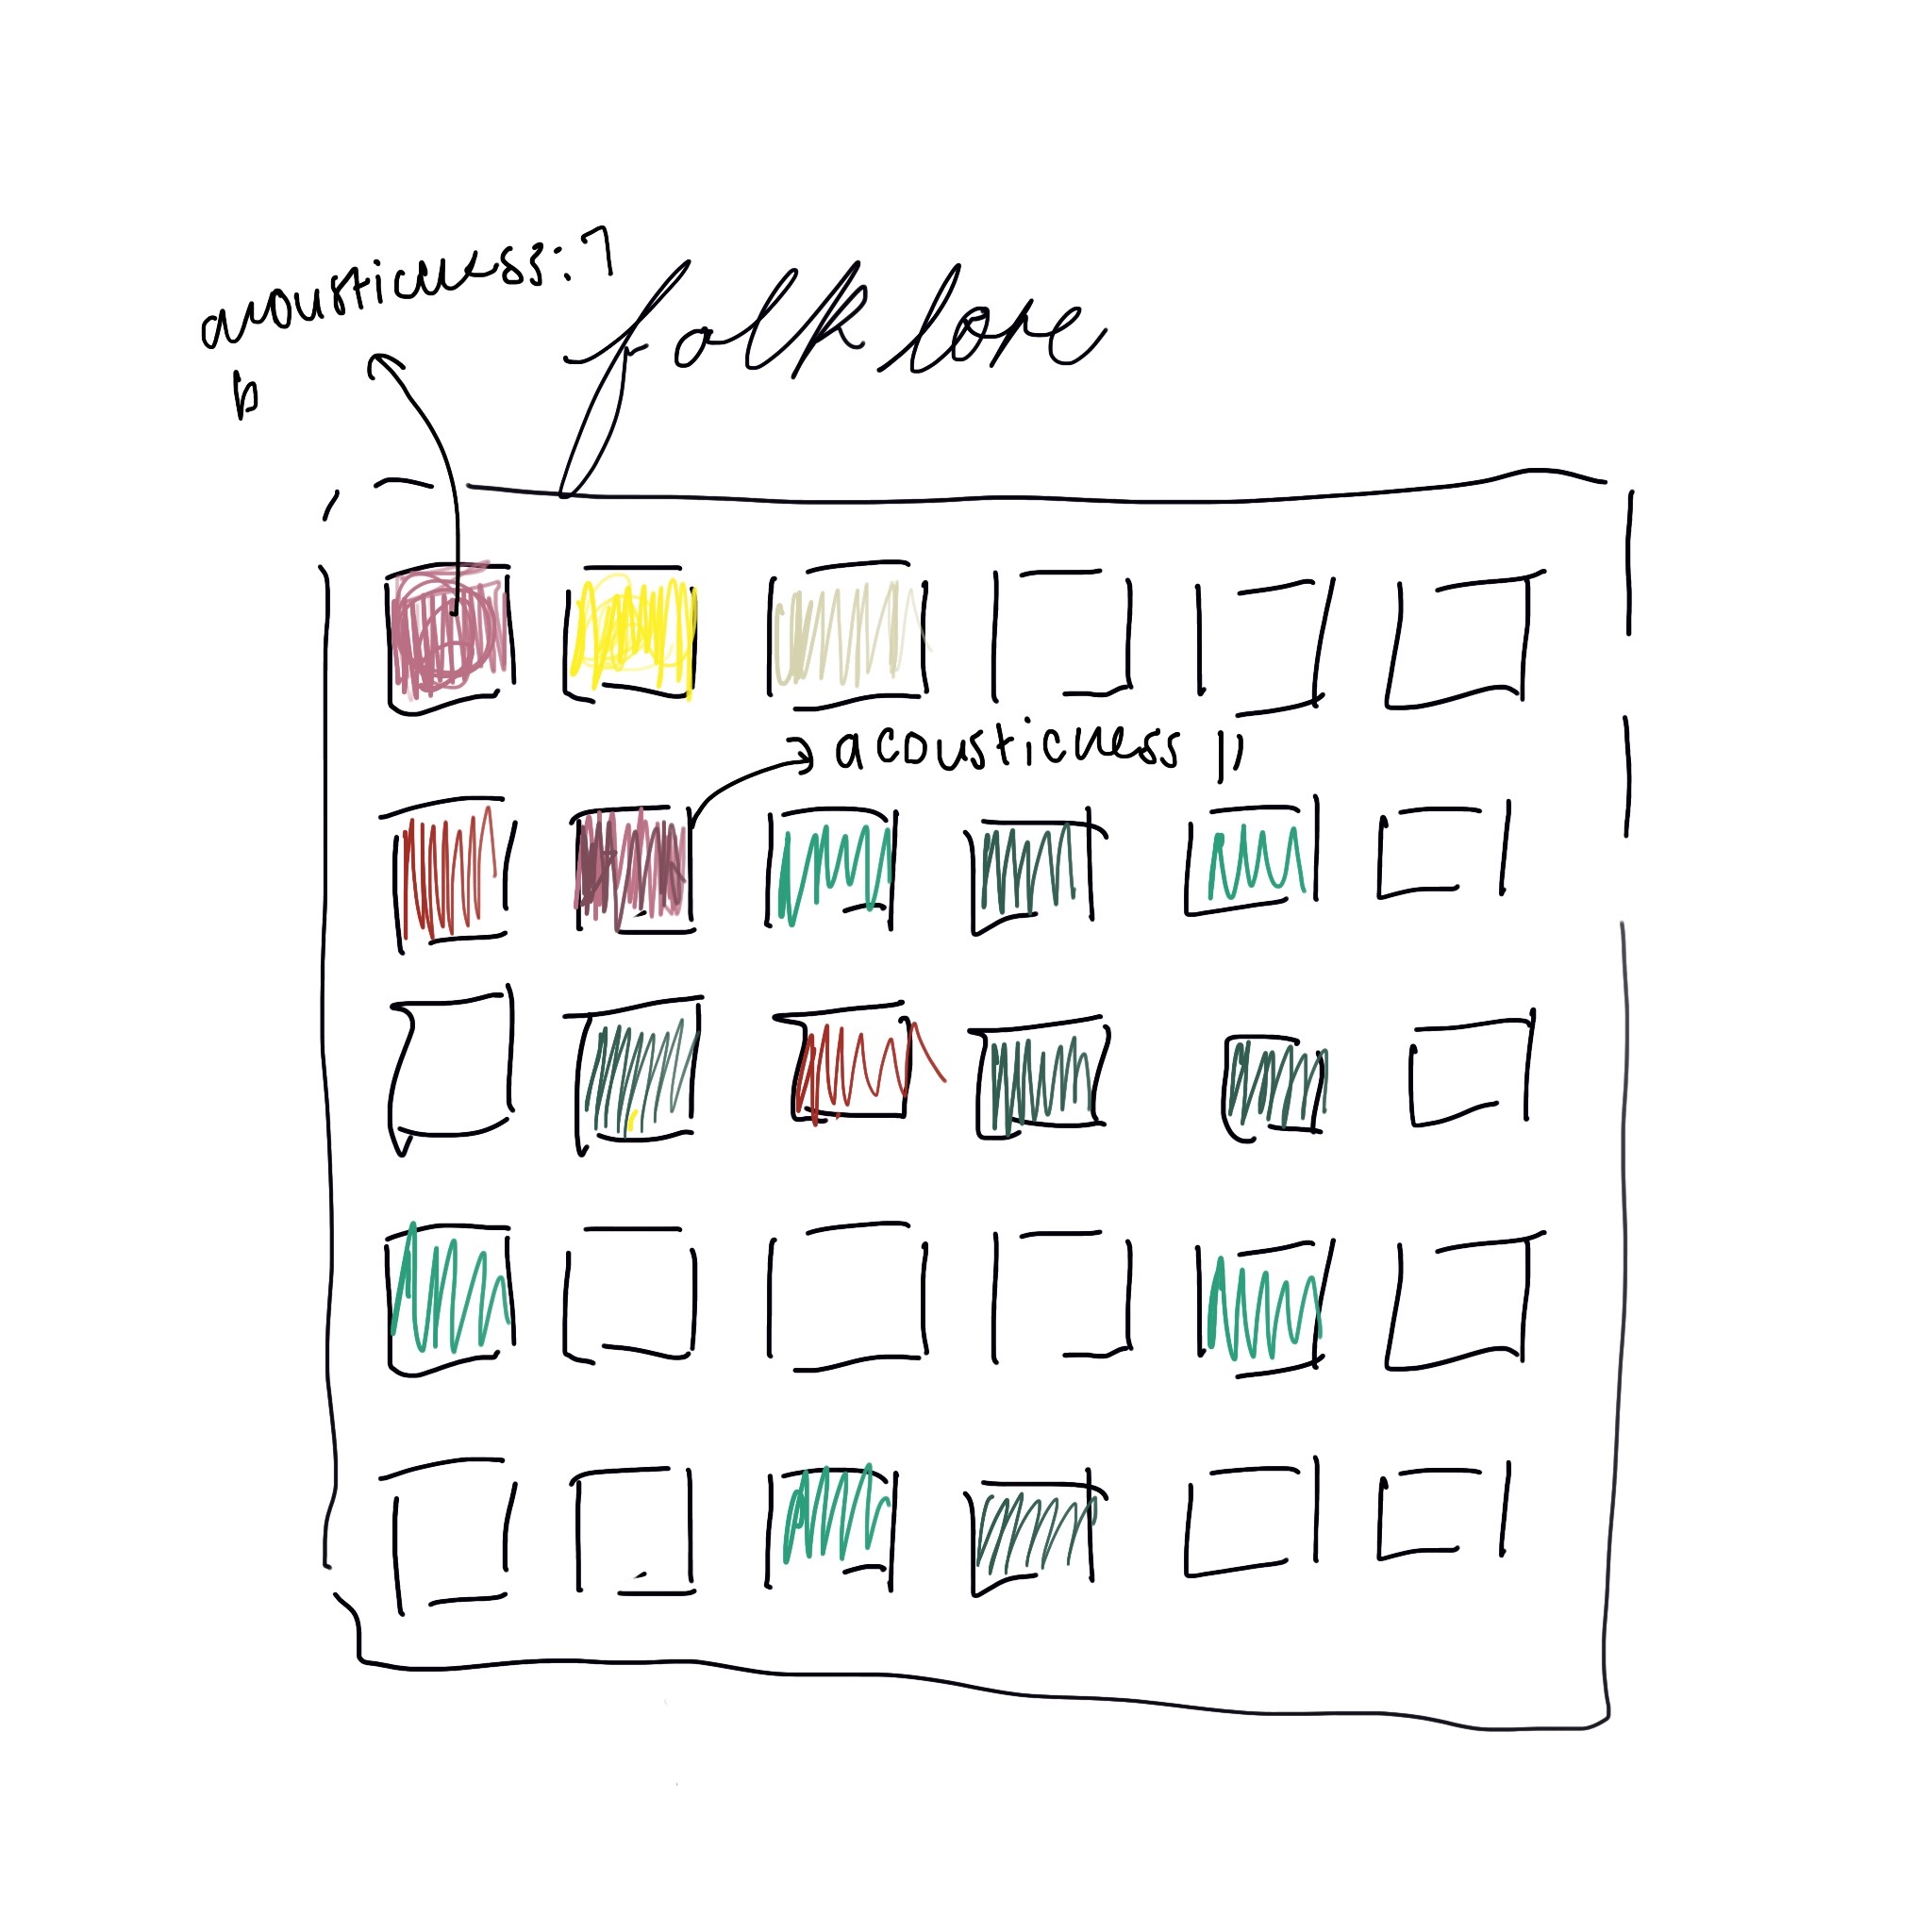 acousticness: 7
folklore
acousticness 11